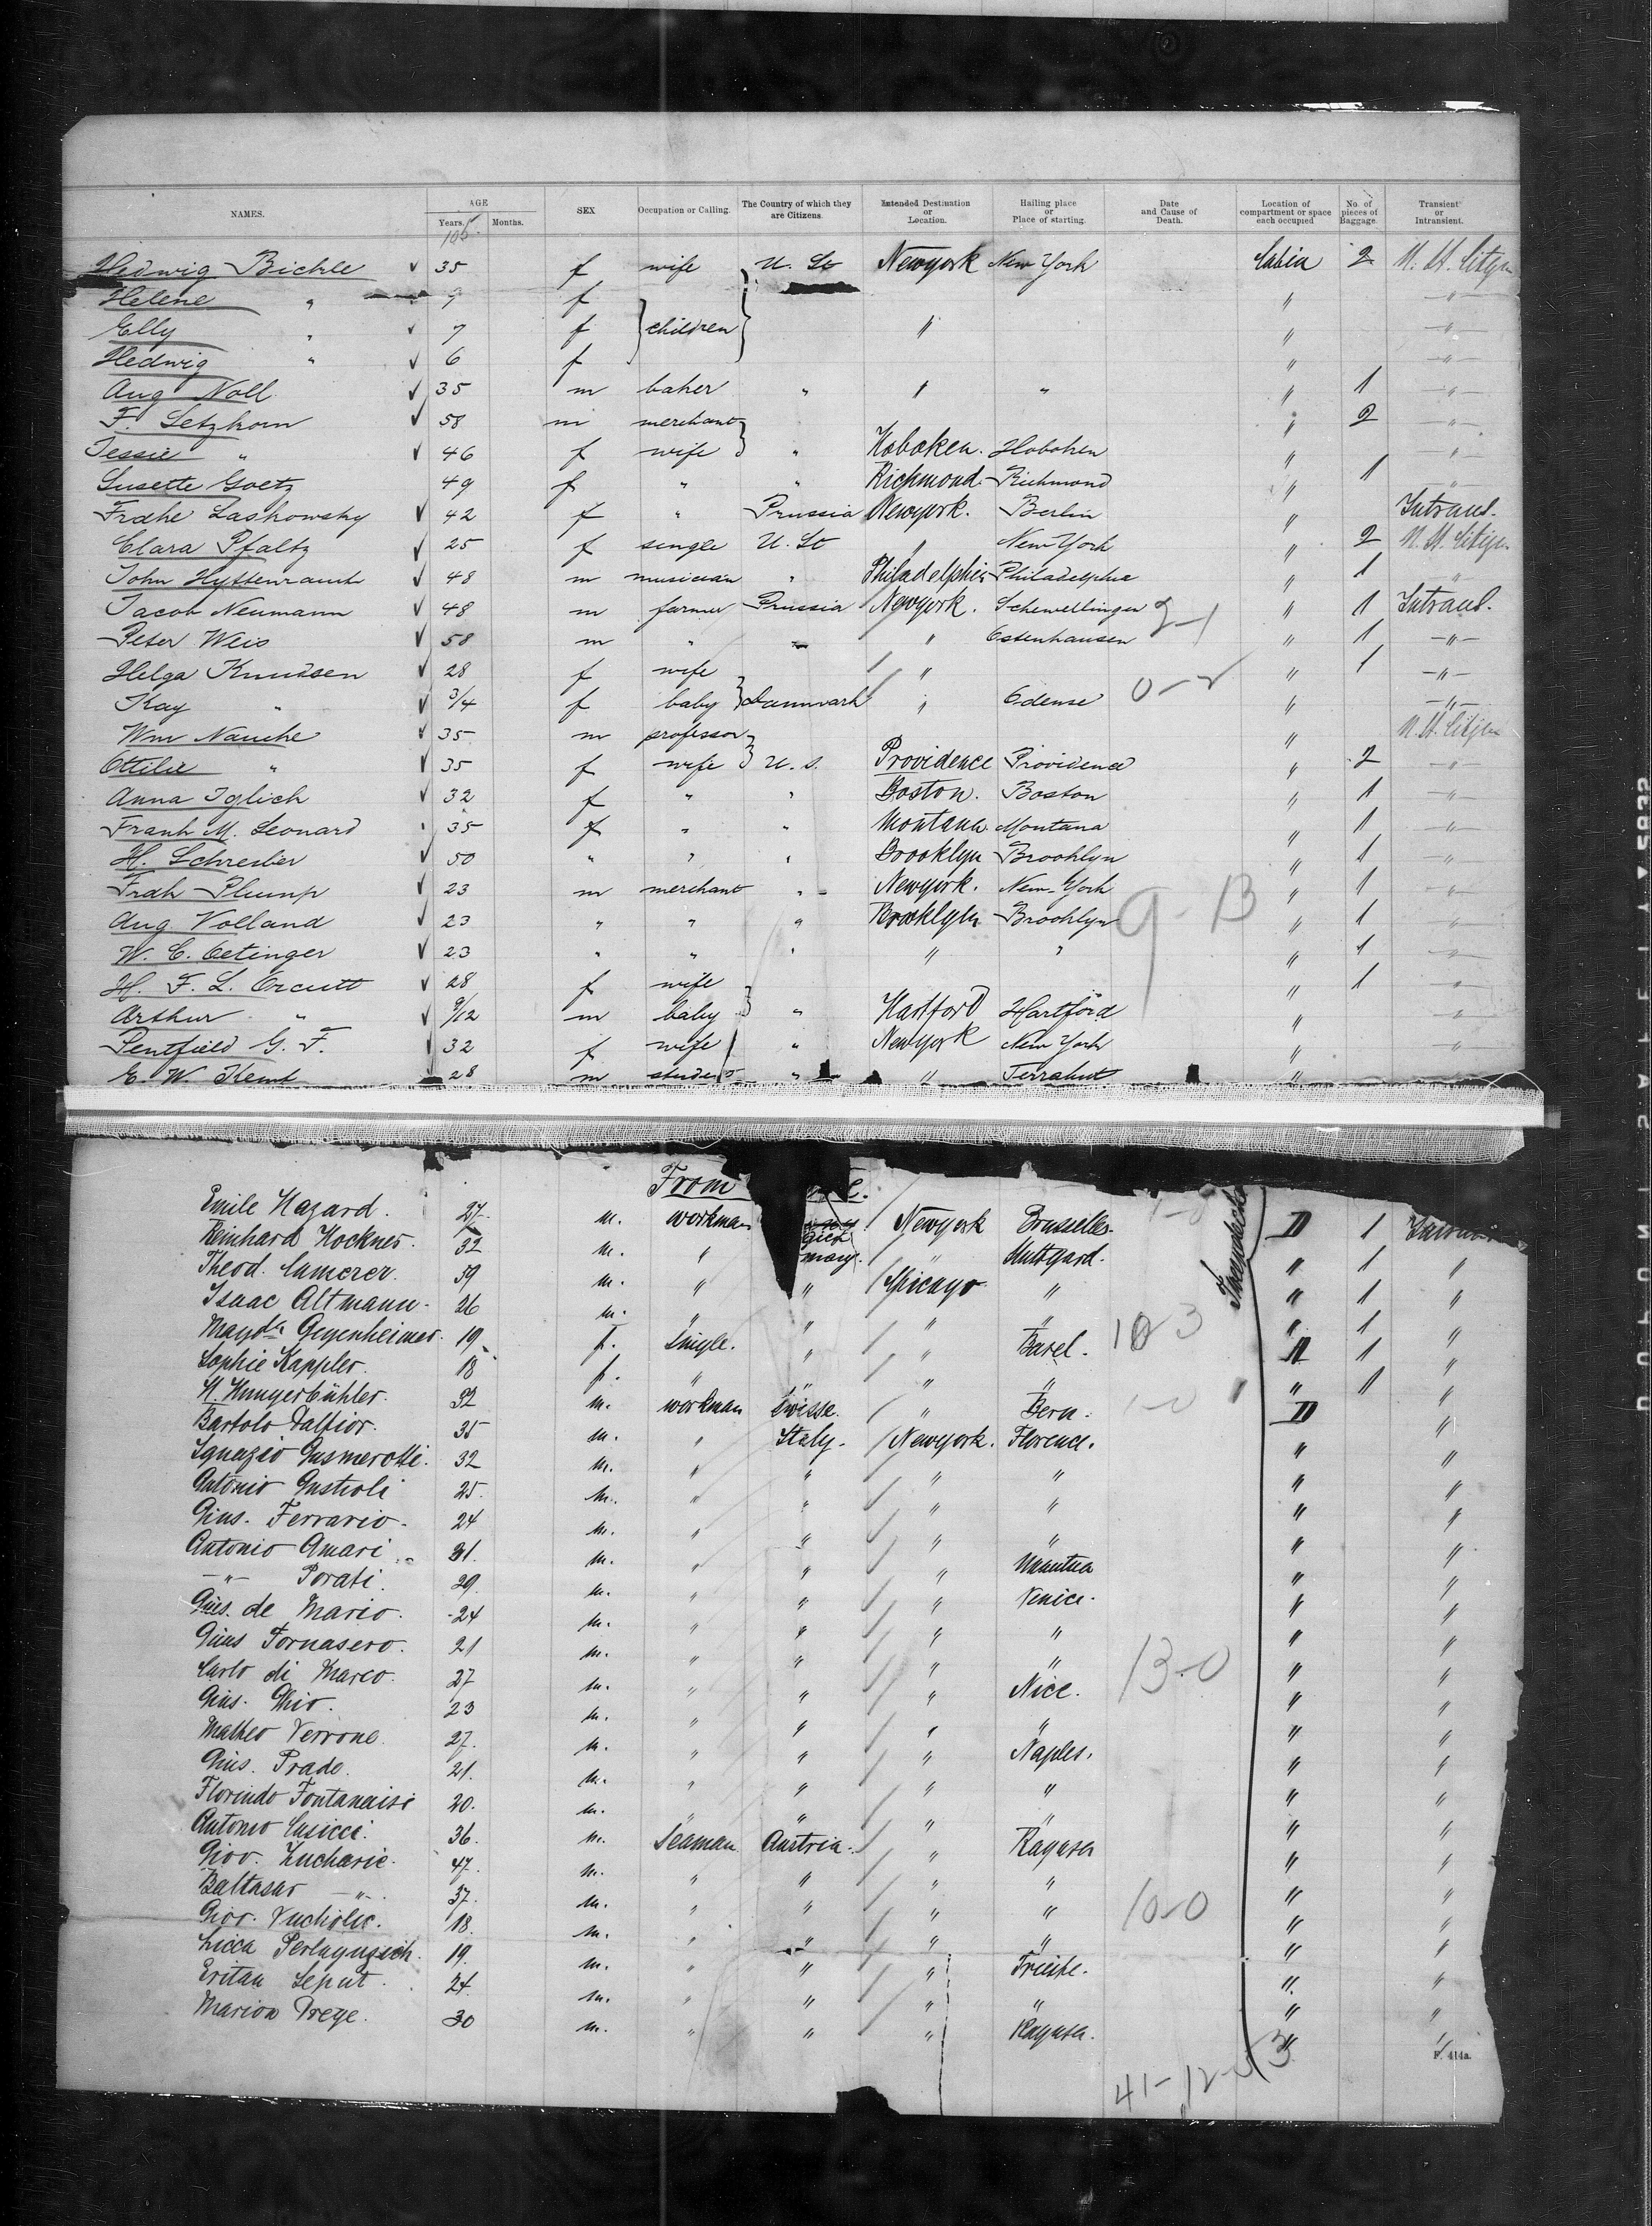 NAMES. AGE Years. Months. SEX Occupation or Calling. The Country of which they are Citizens. Intended Destination or Location. Hailing place or Place of starting. Date and Cause of Death. Location of compartment or space each occupied No. of pieces of Baggage. Transient or Intransient.
Hedwig Bichle ✓ 35 f wife U. St Newyork New York Cabin 2 U. St. Citizen
Helene " 9 f " —"—
Elly " ✓ 7 f children " " —"—
Hedwig " ✓ 6 f " —"—
Aug Noll ✓ 35 m baker " " " " 1 —"—
F. Letzkorn ✓ 58 m merchant " 2 —"—
Jessie " ✓ 46 f wife " Hoboken. Hoboken " —"—
Susette Goetz 49 f " " Richmond. Richmond " 1 "
Frdke Laskowsky ✓ 42 f " Prussia Newyork. Berlin " Intrans.
Clara Pfaltz ✓ 25 f single U. St " New York " 2 U. St. Citizen
John Hyttenrauch ✓ 48 m musician " Philadelphia Philadelphia " 1 "
Jacob Neumann ✓ 48 m farmer Prussia Newyork. Schewellingen 2-1 " 1 Intrans.
Peter Weis ✓ 58 m " " " Estenhausen " 1 —"—
Helga Knudsen ✓ 28 f wife " " 1 —"—
Kay " ✓ 3/4 f baby Dannmark " Odense 0-2 " —"—
Wm Nauche ✓ 35 m professor " U. St. Citizen
Ottilie " ✓ 35 f wife U. S. Providence Providence " 2 —"—
Anna Iglich ✓ 32 f " " Boston. Boston " 1 —"—
Frank M. Leonard 35 f " " Montana Montana " 1 —"—
H. Schreiber ✓ 50 " " " Brooklyn Brooklyn " 1 —"—
Frdk Plump ✓ 23 m merchant " Newyork. New-York " 1 —"—
Aug Volland ✓ 23 " " " Brooklyn Brooklyn 9-13 " 1 —"—
W. C. Oetinger ✓ 23 " " " " " " 1 —"—
H. F. L. Orcutt ✓ 28 f wife " 1 —"—
Arthur " ✓ 9/12 m baby " Hartford Hartford " —"—
Pentfield G. F. ✓ 32 f wife " Newyork New York " —"—
E. W. Kemt 28 m student " " Terrahut "
From
Emile Hazard. 27. m. workman Newyork Brusselles. II 1
Reinhard Hockner. 32 m. " many. " Stuttgard. " 1 "
Theod. Camerer. 59 m. " " Chicago " " 1 "
Isaac Altmann. 26 m. " " " " " 1 "
Magd. Gegenheimer. 19. f. Single. " " Basel. 10 3 II 1 "
Sophie Kappler. 18 f. " " " " " 1 "
H. Hungerbühler. 32 m. workman Swisse. " Bern. 1-0 II "
Bartolo Dalfior. 35 m. " Italy. Newyork. Florence. " "
Ignazio Gusmerotti. 32 m. " " " " " "
Antonio Gustioli 25. m. " " " " " "
Gius. Ferrario. 24 m. " " " " " "
Antonio Amari 31. m. " " " Mantua " "
—"— Porati. 29. m. " " " Venice. " "
Gius. de Mario. 24 m. " " " " " "
Gius Fornasero. 21 m. " " " " 13-0 " "
Carlo di Marco. 27 m. " " " Nice. " "
Gius. Ghio. 23 m. " " " " " "
Matheo Verrone. 27. m. " " " Naples. " "
Gius. Prado. 21. m. " " " " " "
Florindo Fontanaisi 20. m. " " " " " "
Antonio Casicci. 36. m. Seaman Austria. " Ragusa " "
Giov. Zucharic. 47. m. " " " " " "
Baltasar —"— 37. m. " " " " 10-0 " "
Giov. Vucholic. 18. m. " " " " " "
Licca Perlaguzich. 19. m. " " " Trieste. " "
Eritau Seput. 24. m. " " " " " "
Marion Drege. 30 m. " " " Ragusa. " "
F. 414a.
41-12-